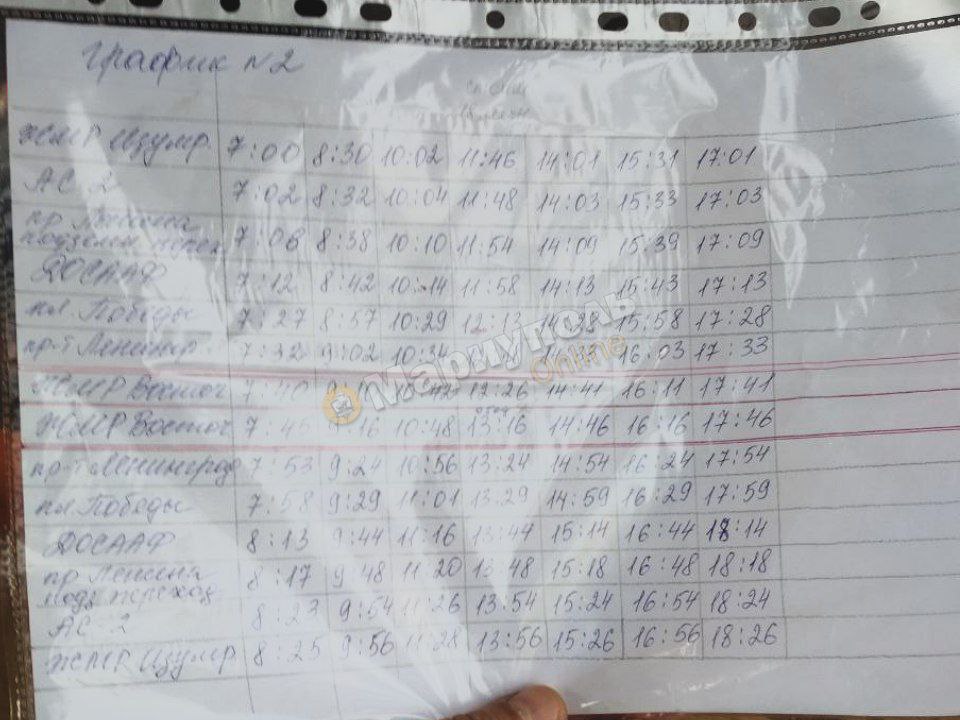 График №2
ЖМР Изумр. 7:00 8:30 10:02 11:46 14:01 15:31 17:01
АС 2 7:02 8:32 10:04 11:48 14:03 15:33 17:03
пр Ленина
подземн. перех. 7:08 8:38 10:10 11:54 14:09 15:39 17:09
ДОСААФ 7:12 8:42 10:14 11:58 14:13 15:43 17:13
пл. Победы 7:27 8:57 10:29 12:13 14:28 15:58 17:28
пр-т Ленингр 7:32 9:02 10:34 16:03 17:33
Мариуполь
Online
ЖМР Восточ 7:40 10:42 12:26 14:41 16:11 17:41
обед
ЖМР Восточ 7:45 9:16 10:48 13:16 14:46 16:16 17:46
пр-т Ленинград 7:53 9:24 10:56 13:24 14:54 16:24 17:54
пл. Победы 7:58 9:29 11:01 13:29 14:59 16:29 17:59
ДОСААФ 8:13 9:44 11:16 13:44 15:14 16:44 18:14
пр Ленина
подз переход 8:17 9:48 11:20 13:48 15:18 16:48 18:18
АС - 2 8:23 9:54 11:26 13:54 15:24 16:54 18:24
ЖМР Изумр 8:25 9:56 11:28 13:56 15:26 16:56 18:26